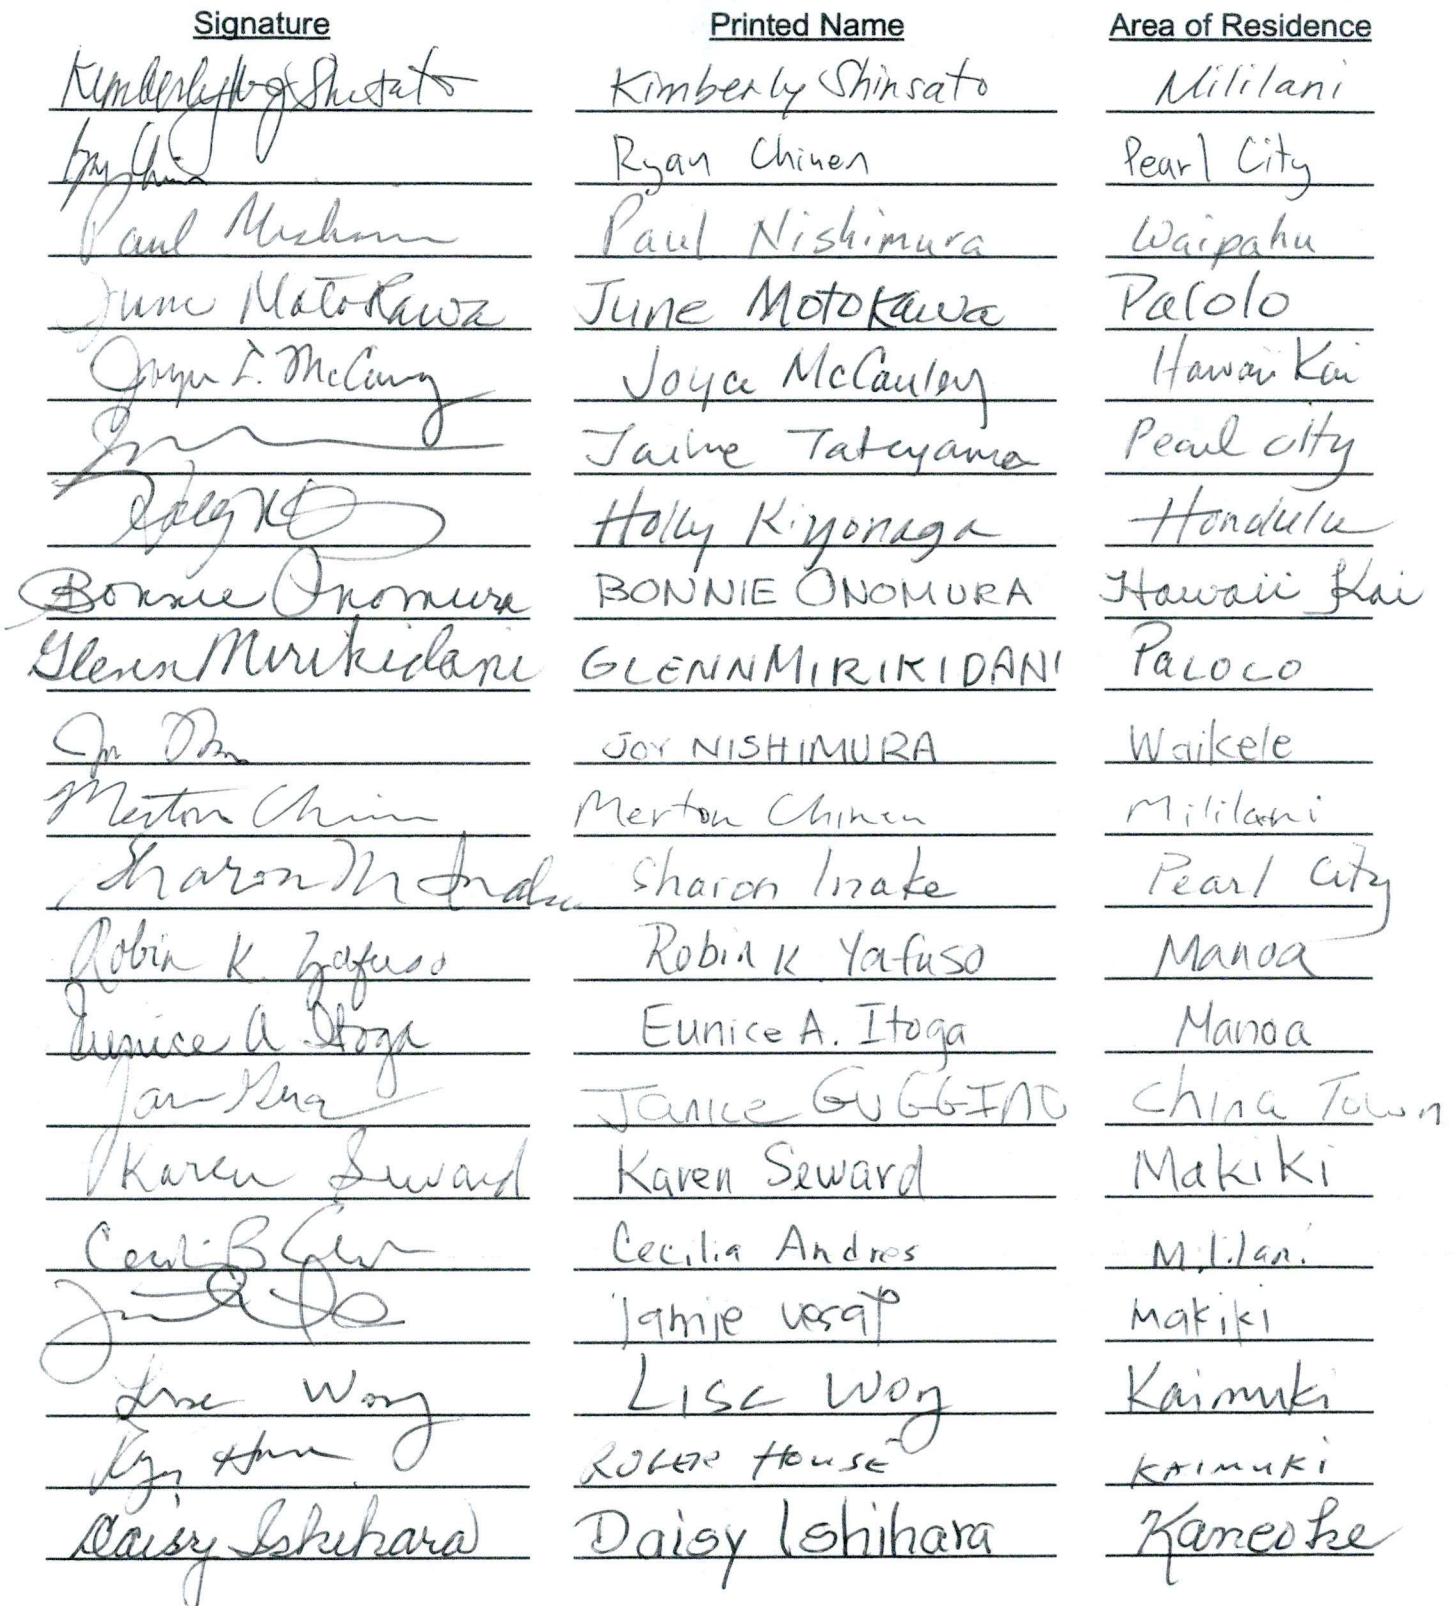 Signature Printed Name Area of Residence
Kimberly Shinsato Kimberly Shinsato Mililani
Ryan Chinen Pearl City
Paul Nishimura Paul Nishimura Waipahu
June Motokawa June Motokawa Palolo
Joyce I. McCauley Joyce McCauley Hawaii Kai
Jaime Tateyama Pearl City
Holly Kiyonaga Honolulu
Bonnie Onomura BONNIE ONOMURA Hawaii Kai
Glenn Mirikidani GLENN MIRIKIDANI PALOLO
JOY NISHIMURA Waikele
Merton Chinen Merton Chinen Mililani
Sharon M Inake Sharon Inake Pearl City
Robin K. Yafuso Robin K Yafuso Manoa
Eunice A Itoga Eunice A. Itoga Manoa
Janice GUGGINO China Town
Karen Seward Karen Seward Makiki
Cecilia Andres Mililani
Jamie Makiki
Lisa Wong Lisa Wong Kaimuki
ROGER HOUSE KAIMUKI
Daisy Ishihara Daisy Ishihara Kaneohe